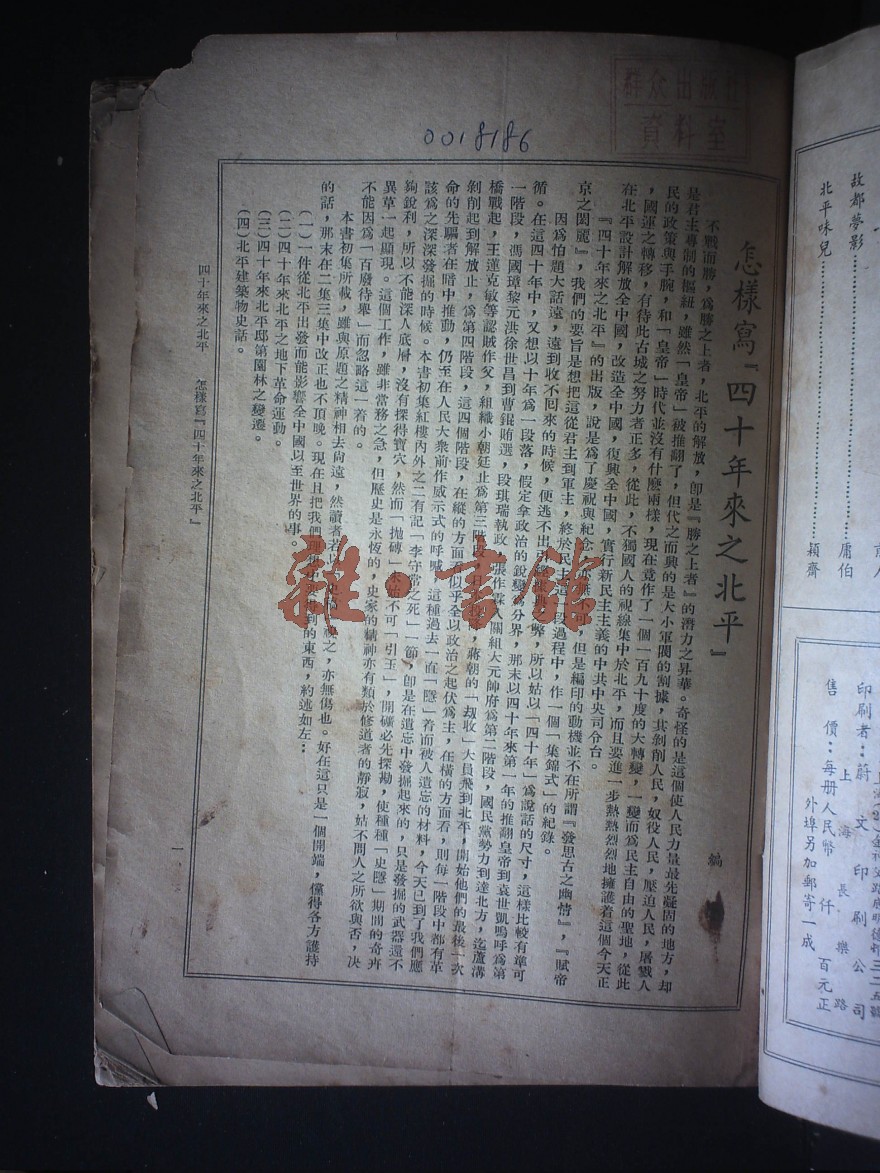 群众出版社
資料室
0018186
怎樣寫『四十年來之北平』
編
不戰而勝，爲勝之上者，北平的解放，卽是『勝之上者』的潛力之昇華。奇怪的是這個使人民力量最先鞏固的地方，却
是君主專制的樞紐，雖然「皇帝」被推翻了，但代之而興的是大小軍閥的割據，其剝削人民，奴役人民，壓迫人民，屠戮人
民的政策與手腕，和「皇帝」時代並沒有什麼兩樣，現在竟作了一個一百九十度的大轉變，一變而爲民主自由的聖地，從此
，國運之轉移，有待此古城之努力者正多，從此，不獨國人的視線集中於北平，而且要進一步熱熱烈烈地擁護着這個今天正
在北平設計解放全中國，改造全中國，復興全中國，實行新民主主義的中共中央司令台。
『四十年來之北平』的出版，說是爲了慶祝與紀念亦無不可，但是編印的動機並不在所謂『發思古之幽情』，『賦帝
京之閎麗』，我們的要旨是想把這從君主到軍主，終於民主這一段過程中，作一個「集錦式」的紀錄。
因爲怕題大話遠，遠到收不回來的時候，便逃不出引經據典之弊，所以姑以「四十年」爲說話的尺寸，這樣比較有準可
循。在這四十年中，又想以十年爲一段落，假定拿政治的銳變爲分界，那末以四十年來第一年的推翻皇帝到袁世凱嗚呼爲第
一階段，馮國璋黎元洪徐世昌到曹錕賄選，段琪瑞執政，張作霖入關組大元帥府爲第二階段，國民黨勢力到達北方，迄蘆溝
橋戰起，王逕克敏等認賊作父，組織小朝廷止爲第三階段，日投降，蔣朝的「刼收」大員飛到北平，開始他們的最後一次
剝削起到解放止，爲第四階段，這四個階段，在縱的方面看似乎全以政治之起伏爲主，在橫的方面看，則每一階段中都有革
命的先驅者在暗中推動，仍至在人民大衆前作威示式的呼喊，這種過去一直「隱」着而被人遺忘的材料，今天已到了我們應
該爲之深深發掘的時候。本書初集紅樓內外之二有記「李守常之死」一節，卽是在遺忘中發掘起來的，只是發掘的武器還不
夠銳利，所以不能深入底層，沒有探得寶穴，然而「拋磚」未始不可「引玉」，開礦必先探勘，使種種「史隱」期間的奇卉
異草一起顯現。這個工作，雖非當務之急，但歷史是永恆的，史家的精神亦有類於修道者的靜寂，姑不問人之所欲與否，决
不能因爲「百廢待舉」而忽略這一着的。
本書初集所載，雖與原題之精神相去尚遠，然讀者若以視之，亦無傷也。好在這只是一個開端，僅得各方護持
的話，那末在二集三集中改正也不頂晚。現在且把我們理想中要得到的東西，約述如左：
(一)一件從北平出發而能影響全中國以至世界的事。
(二)四十年來北平之地下革命運動。
(三)四十年來北平邸第園林之變遷。
(四)北平建築物史話。
四十年來之北平　怎樣寫『四十年來之北平』
一
雜·書館
故都夢影……庸伯
北平味兒……穎齋
印刷者：蔚文印刷公司
上海長樂路
售價：每册人民幣　仟　百元正
外埠另加郵寄一成